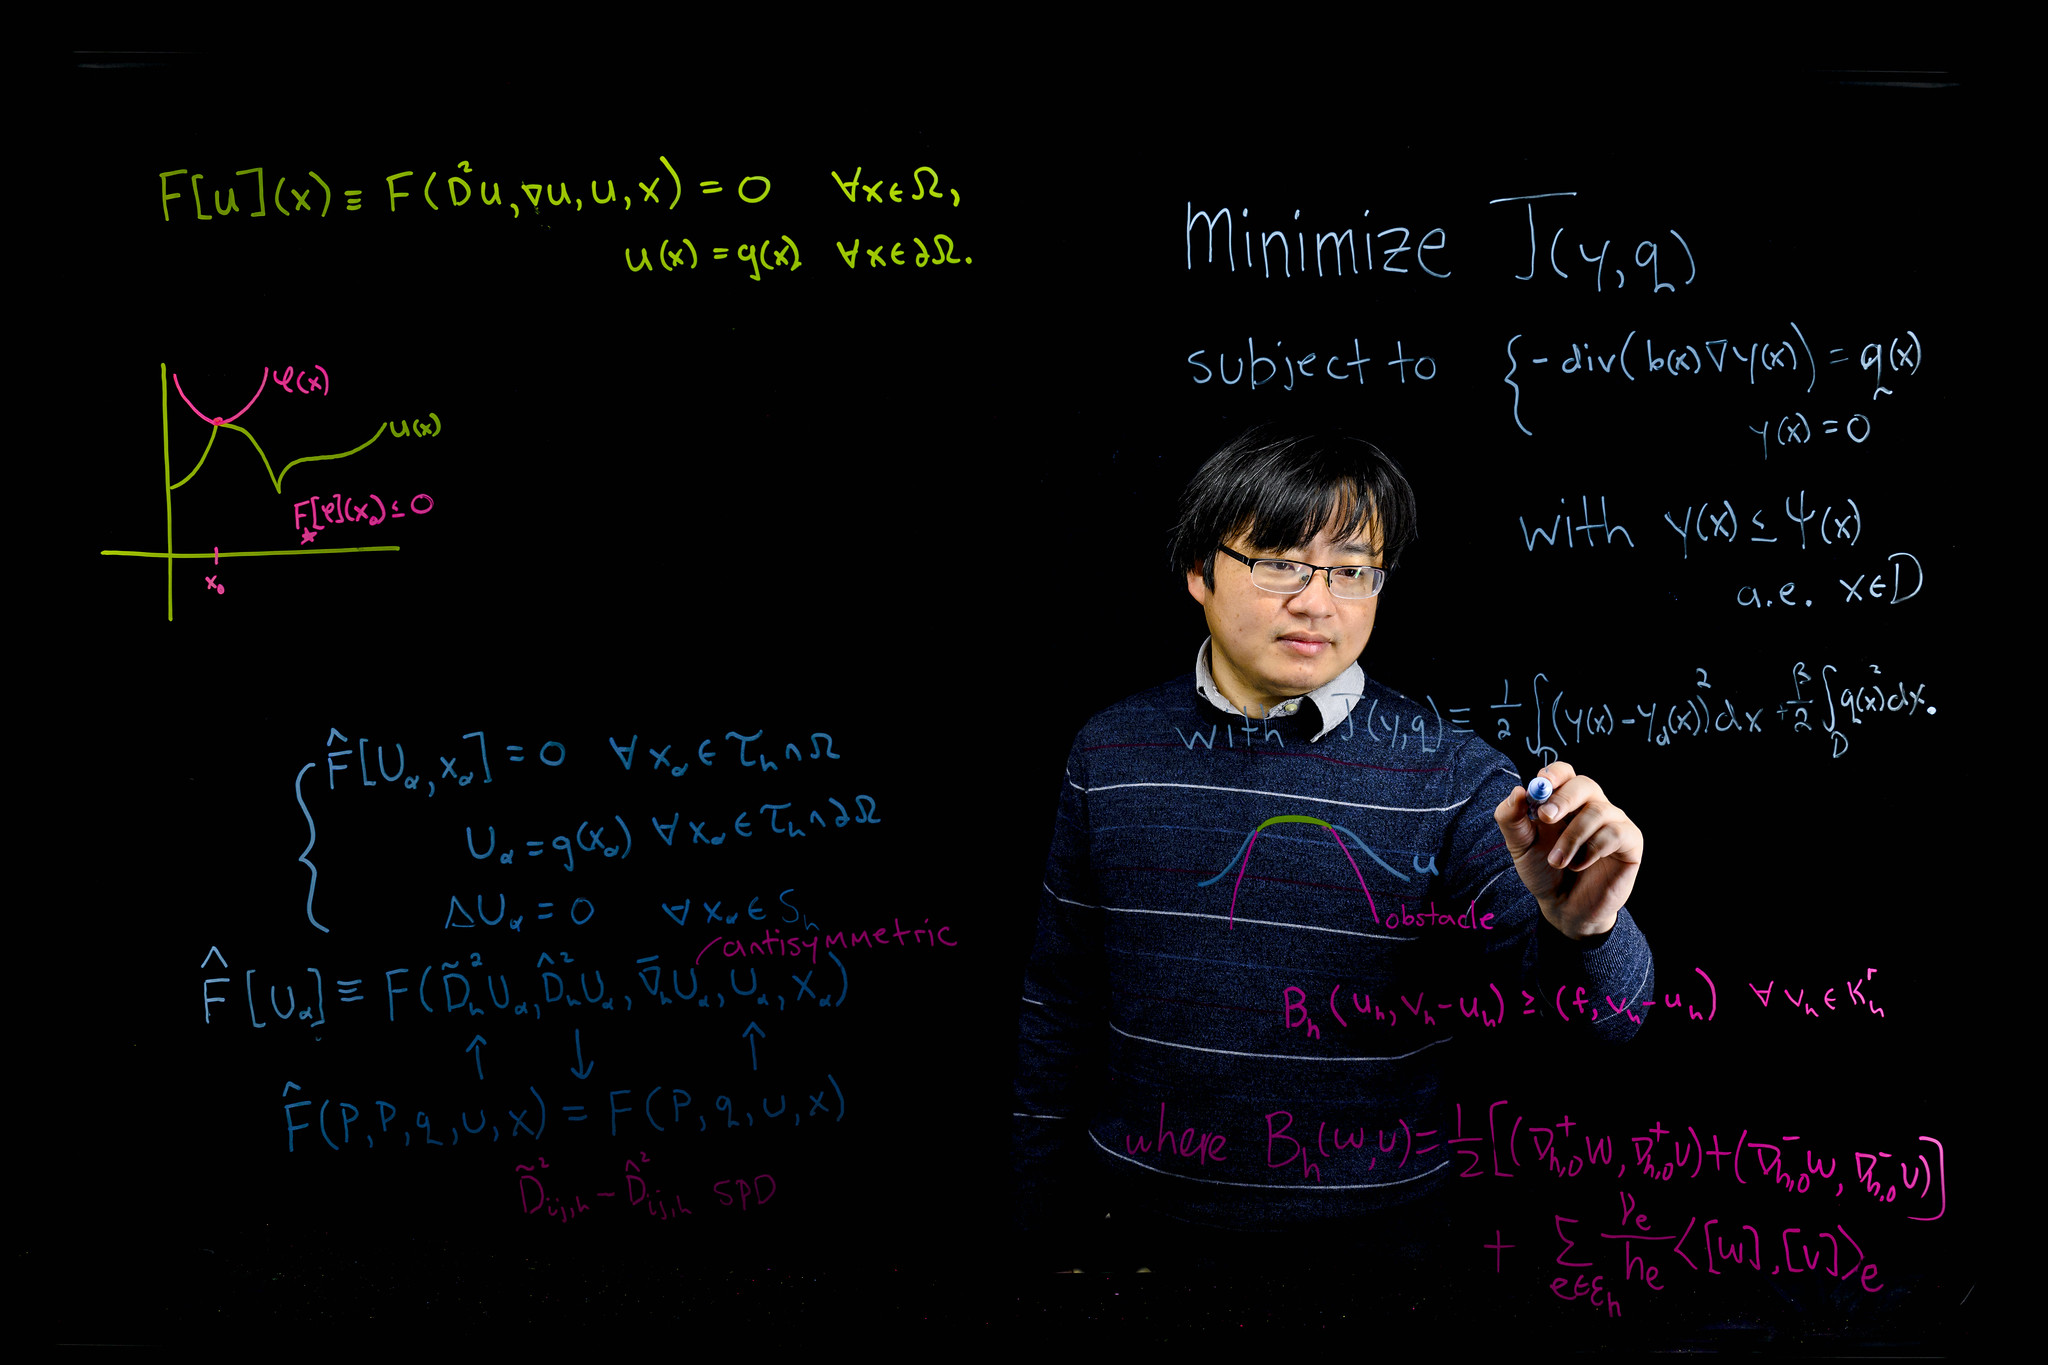 F[u](x) ≡ F(D²u, ∇u, u, x) = 0 ∀x∈Ω,
u(x) = g(x) ∀x∈∂Ω.
φ(x)
u(x)
F[φ](x₀) ≤ 0
x₀
F̂[U_α, x_α] = 0 ∀ x_α ∈ T_h ∩ Ω
U_α = g(x_α) ∀ x_α ∈ T_h ∩ ∂Ω
ΔU_α = 0 ∀ x_α ∈ S_h
antisymmetric
F̂[U_α] ≡ F(D̃²_h U_α, D̂²_h U_α, ∇̄_h U_α, U_α, x_α)
↑ ↓ ↑
F̂(P, P, q, u, x) = F(P, q, u, x)
D̃²_{ij,h} - D̂²_{ij,h} SPD
Minimize J(y, q)
subject to { -div(b(x)∇y(x)) = q(x)
y(x) = 0
with y(x) ≤ Ψ(x)
a.e. x∈D
with J(y,q) ≡ 1/2 ∫_D (y(x) - y_d(x))² dx + β/2 ∫_D q(x)² dx.
u
obstacle
B_h(u_h, v_h - u_h) ≥ (f, v_h - u_h) ∀ v_h ∈ K_h^r
where B_h(w,v) = 1/2 [(∇⁺_{h,0} w, ∇⁺_{h,0} v) + (∇⁻_{h,0} w, ∇⁻_{h,0} v)]
+ Σ_{e∈ε_h} ν_e/h_e ⟨[w], [v]⟩_e